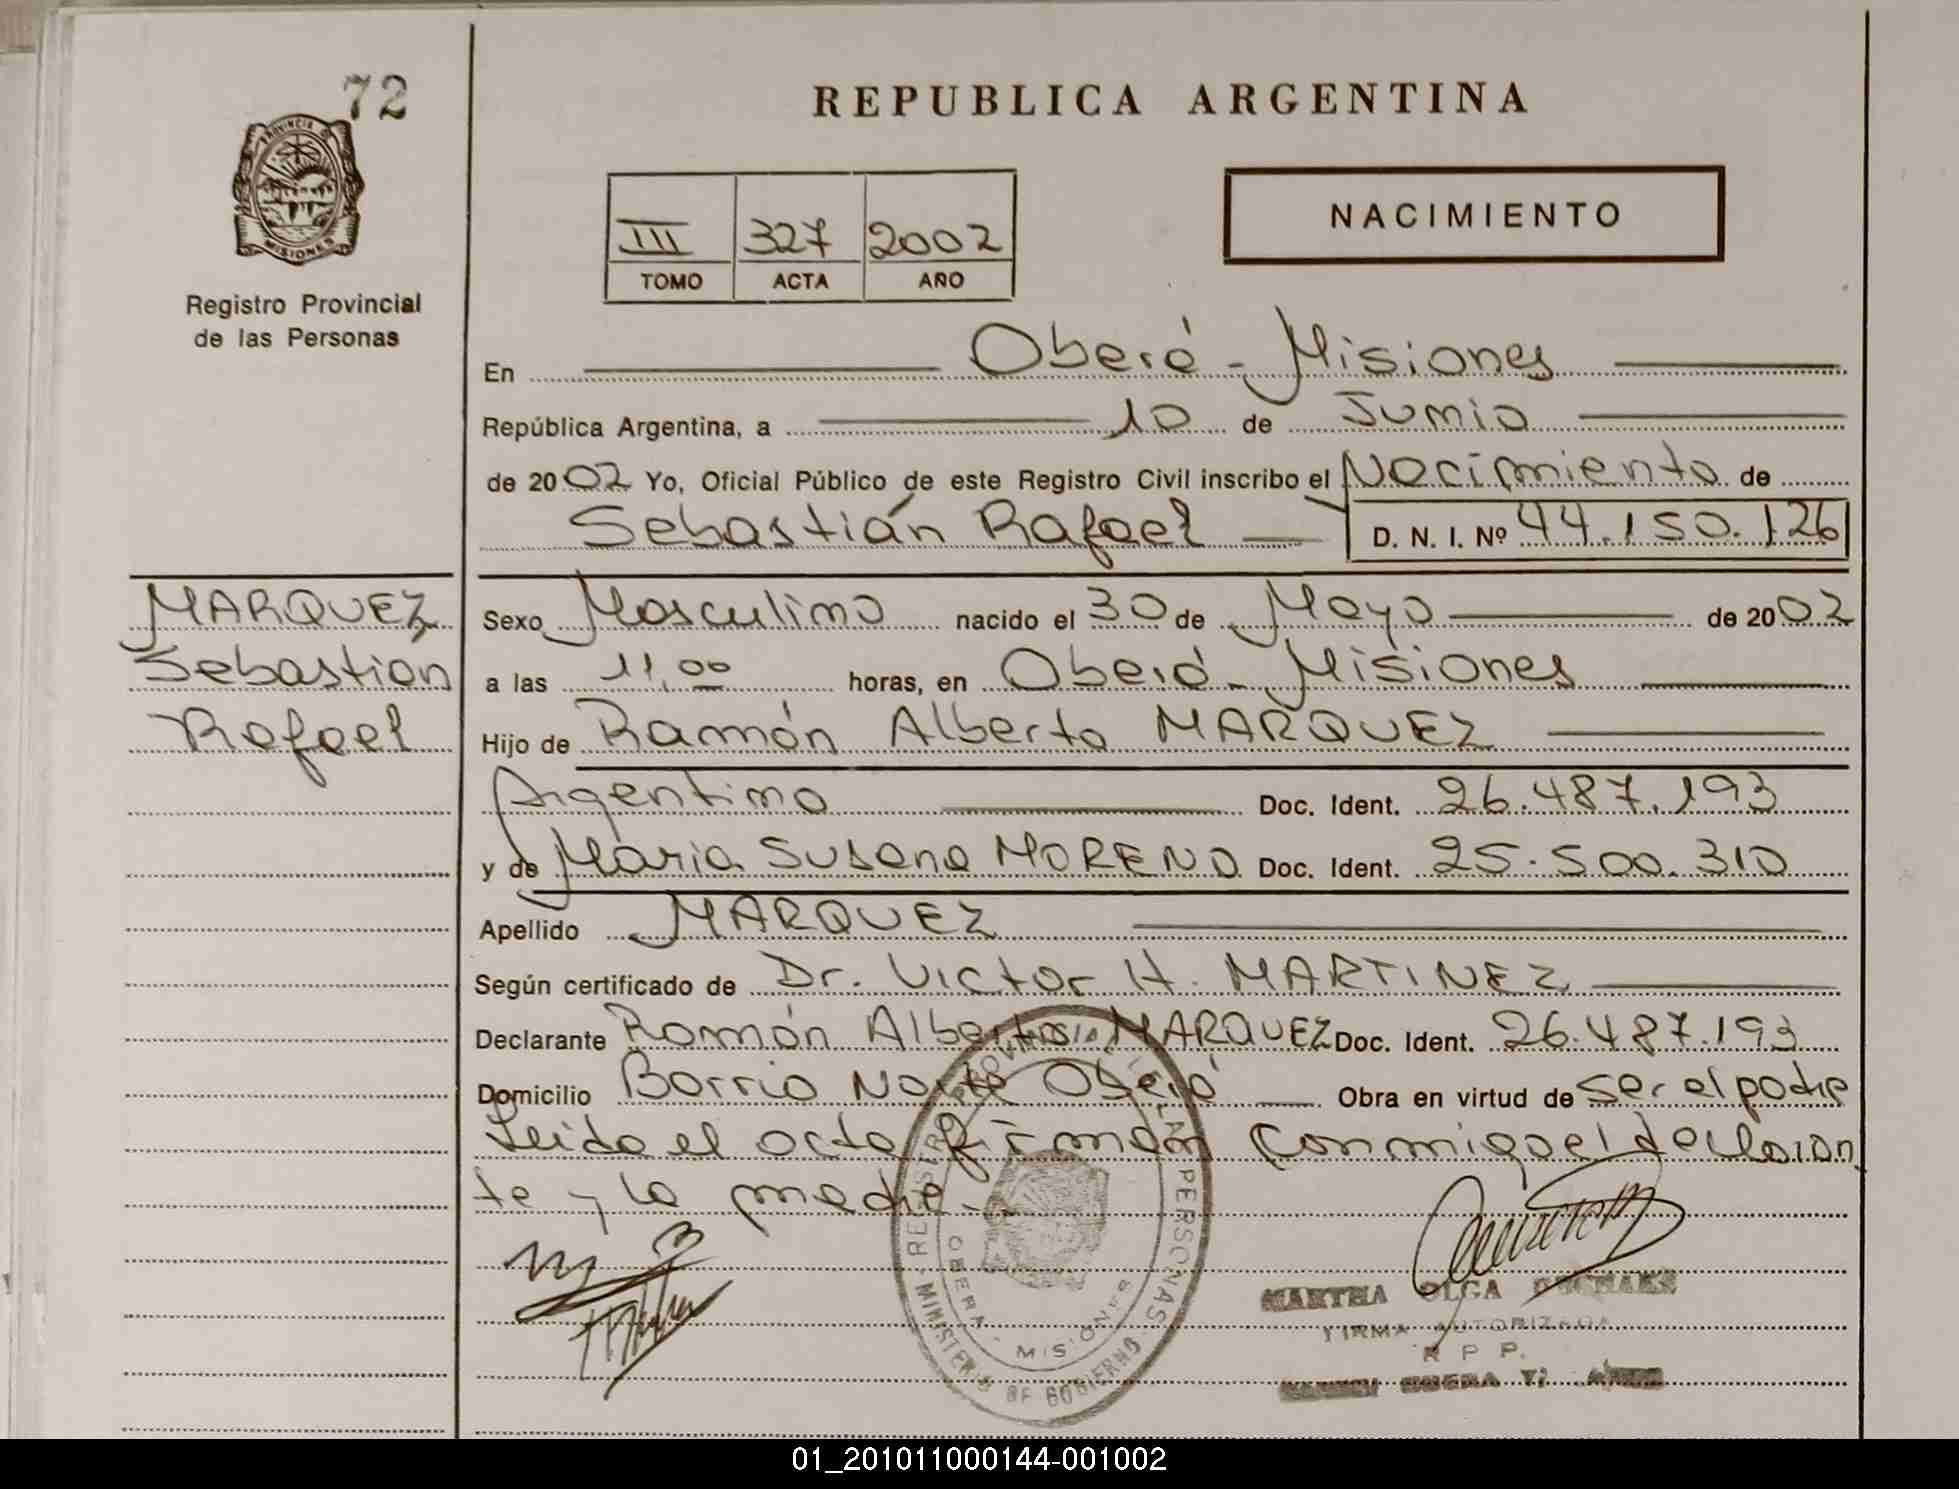 72
PROVINCIA DE
MISIONES
Registro Provincial
de las Personas
REPUBLICA ARGENTINA
III 327 2002
TOMO ACTA AÑO
NACIMIENTO
En Oberá - Misiones
República Argentina, a 10 de Junio
de 2002 Yo, Oficial Público de este Registro Civil inscribo el Nacimiento de
Sebastián Rafael D. N. I. Nº 44.150.126
MARQUEZ
Sebastian
Rafael
Sexo Masculino nacido el 30 de Mayo de 2002
a las 11,00 horas, en Oberá - Misiones
Hijo de Ramón Alberto MARQUEZ
Argentino Doc. Ident. 26.487.193
y de Maria Susana MORENO Doc. Ident. 25.500.310
Apellido MARQUEZ
Según certificado de Dr. Victor H. MARTINEZ
Declarante Ramón Alberto MARQUEZ Doc. Ident. 26.487.193
Domicilio Barrio Norte Oberá Obra en virtud de ser el padre
Leida el acta firman conmigo el declaran
te y la madre.-
REGISTRO PROVINCIAL DE LAS PERSONAS
OBERA - MISIONES
MINISTERIO DE GOBIERNO
MARTHA OLGA
FIRMA AUTORIZADA
R P P.
01_201011000144-001002